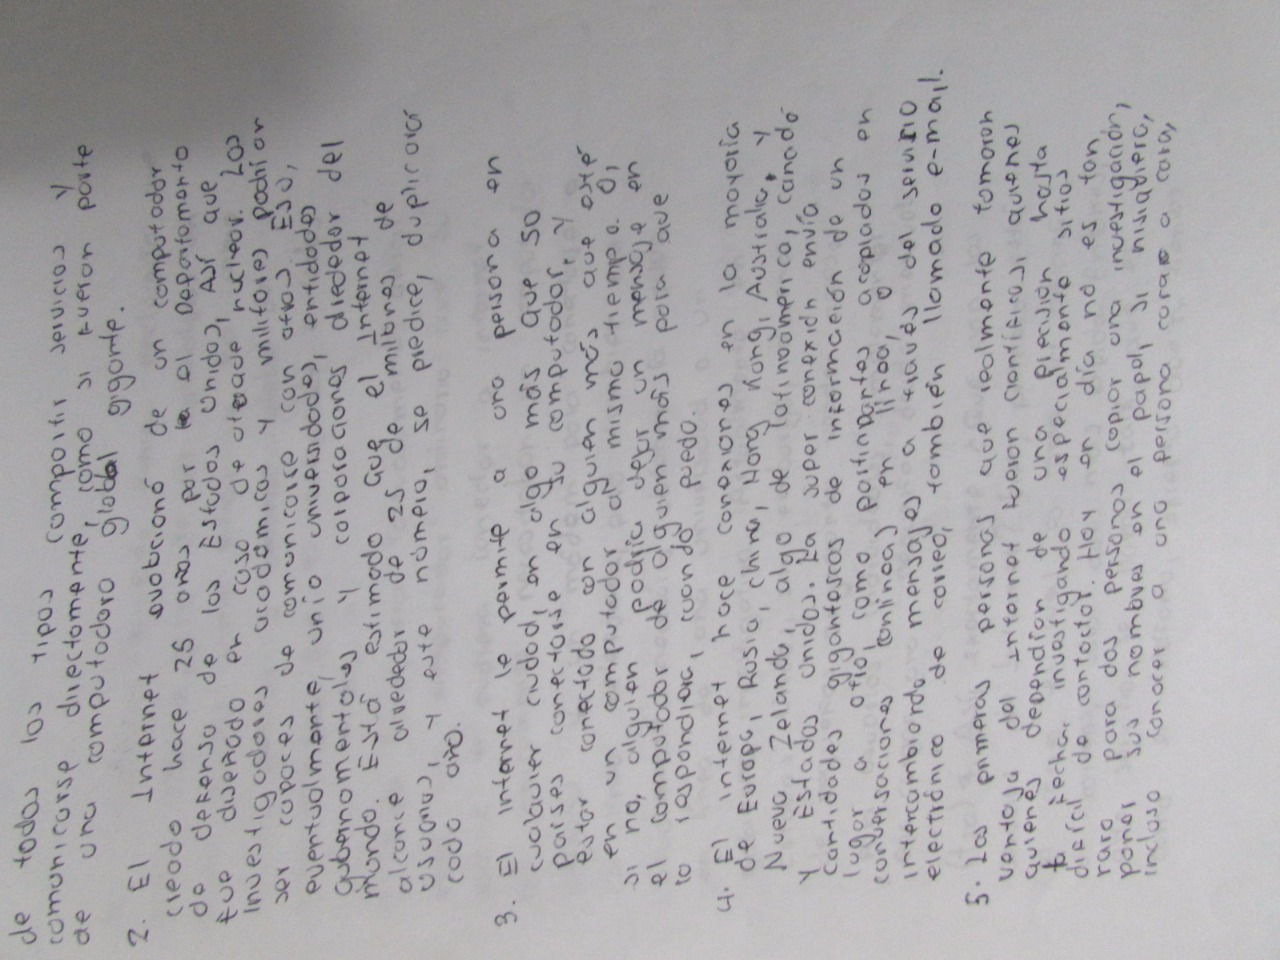 de todos los tipos compartir servicios y
comunicarse directamente, como si fueran parte
de una computadora global gigante.
2. El Internet evolucionó de un computador
creado hace 25 años por el Departamento
de defensa de los Estados Unidos, Así que
fue diseñado en caso de ataque nuclear. Los
investigadores académicos y militares podrían
ser capaces de comunicarse con otros Eso,
eventualmente, unio universidades, entidades
gubernomentales y corporaciones alrededor del
mundo. Está estimado que el Internet
alcance alrededor de 25 de millones de
usuarios, y este número, se predice, duplicará
cada año.
3. El internet le permite a una persona en
cualquier ciudad, en algo más que 50
países conectarse en su computador, y
estar conectado con alguien más que esté
en un computador al mismo tiempo. O,
si no, alguien podría dejar un mensaje en
el computador de alguien más para que
lo respondiera, cuando pueda.
4. El internet hace conexiones en la mayoría
de Europa, Rusia, china, Hong Kong, Australia, y
Nueva Zelanda, algo de latinoamerica, canadá
y Estados unidos. La super conexión envía
cantidades gigantescas de información de un
lugar a otro, como participantes acoplados en
conversaciones (onlineas) en linea, o
intercambiando mensajes a través del servicio
electrónico de correo, también llamado e-mail.
5. Las primeras personas que realmente tomaron
ventaja del internet fueron científicos, quienes
quienes dependían de una precisión hasta
la fecha, investigando especialmente sitios
difícil de contactar. Hoy en día no es tan
raro para dos personas copiar una investigación,
poner sus nombres en el papel, si nisiquiera,
incluso conocer a una persona cara a cara,